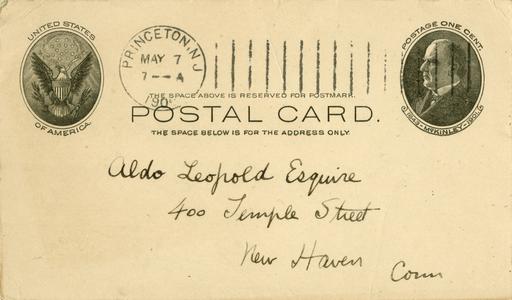 UNITED STATES
OF AMERICA.
PRINCETON, N.J.
MAY 7
7 - A
190
POSTAGE ONE CENT.
1843 - McKINLEY - 1901
THE SPACE ABOVE IS RESERVED FOR POSTMARK.
POSTAL CARD.
THE SPACE BELOW IS FOR THE ADDRESS ONLY.
Aldo Leopold Esquire
400 Temple Street
New Haven
Conn